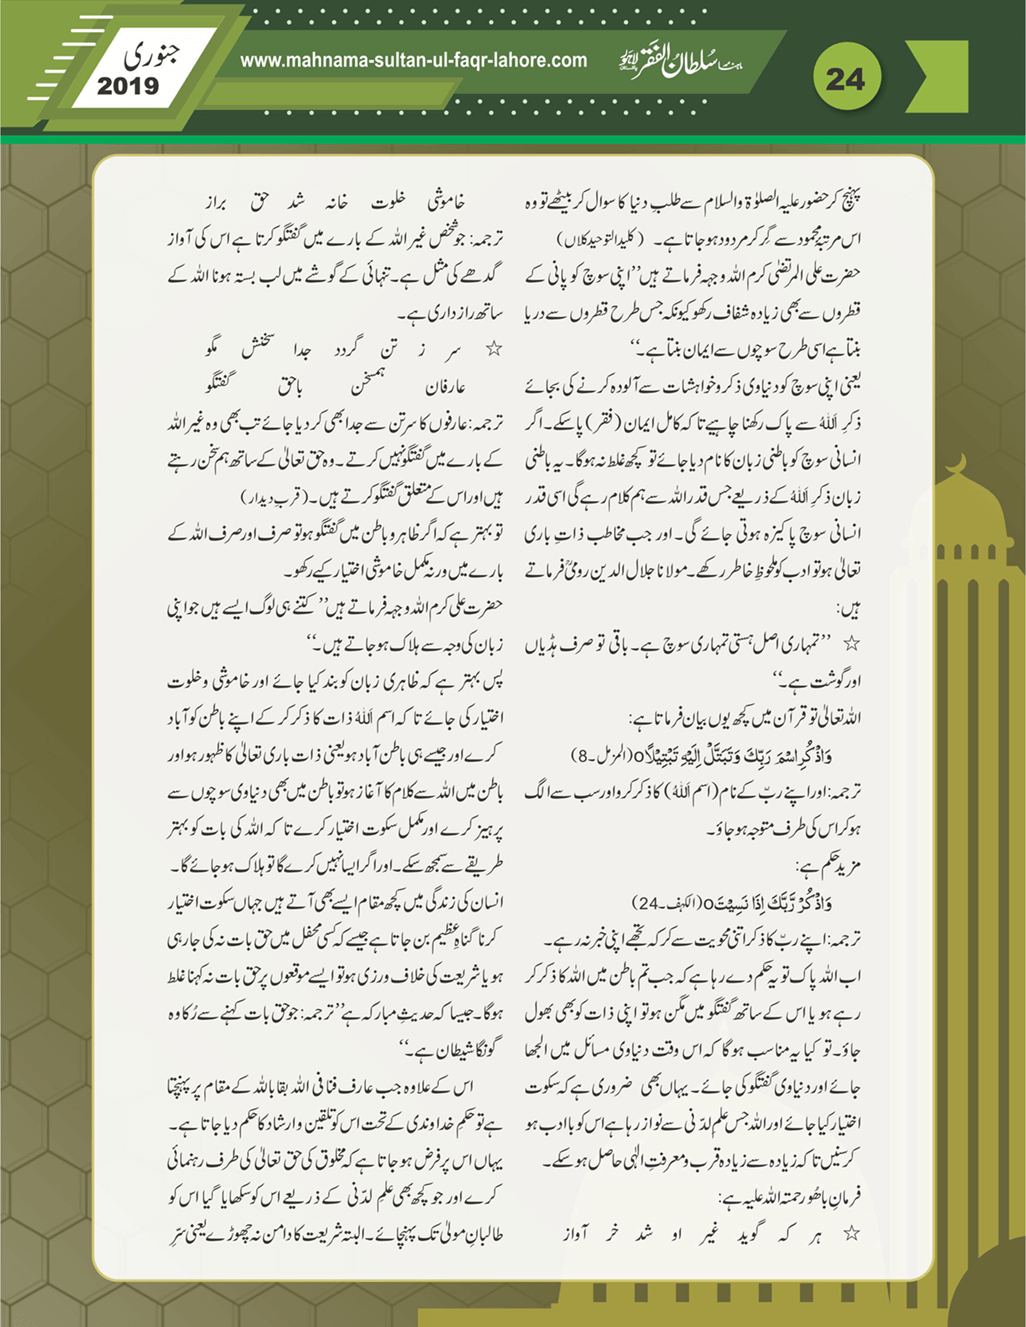 جنوری
2019
www.mahnama-sultan-ul-faqr-lahore.com
ماہنامہ سلطان الفقر لاہور
24
پہنچ کر حضور علیہ الصلوٰۃ والسلام سے طلبِ دنیا کا سوال کر بیٹھے تو وہ
اس مرتبۂ محمود سے گِر کر مردود ہو جاتا ہے۔ (کلید التوحید کلاں)
حضرت علی المرتضٰی کرم اللہ وجہہ فرماتے ہیں ’’اپنی سوچ کو پانی کے
قطروں سے بھی زیادہ شفاف رکھو کیونکہ جس طرح قطروں سے دریا
بنتا ہے اسی طرح سوچوں سے ایمان بنتا ہے۔‘‘
یعنی اپنی سوچ کو دنیاوی ذکر و خواہشات سے آلودہ کرنے کی بجائے
ذکرِ اَللّٰہُ سے پاک رکھنا چاہیے تاکہ کامل ایمان (فقر) پا سکے۔ اگر
انسانی سوچ کو باطنی زبان کا نام دیا جائے تو کچھ غلط نہ ہوگا۔ یہ باطنی
زبان ذکرِ اَللّٰہُ کے ذریعے جس قدر اللہ سے ہم کلام رہے گی اسی قدر
انسانی سوچ پاکیزہ ہوتی جائے گی۔ اور جب مخاطب ذاتِ باری
تعالیٰ ہو تو ادب کو ملحوظِ خاطر رکھے۔ مولانا جلال الدین رومیؒ فرماتے
ہیں:
☆ ’’تمہاری اصل ہستی تمہاری سوچ ہے۔ باقی تو صرف ہڈیاں
اور گوشت ہے۔‘‘
اللہ تعالیٰ تو قرآن میں کچھ یوں بیان فرماتا ہے:
وَاذْکُرِاسْمَ رَبِّکَ وَتَبَتَّلْ اِلَیْہِ تَبْتِیْلًاo (المزمل۔8)
ترجمہ: اور اپنے ربّ کے نام (اسم اَللّٰہُ) کا ذکر کرو اور سب سے الگ
ہو کر اس کی طرف متوجہ ہو جاؤ۔
مزید حکم ہے:
وَاذْکُرْ رَّبَّکَ اِذَا نَسِیْتَo (الکہف۔24)
ترجمہ: اپنے ربّ کا ذکر اتنی محویت سے کر کہ تجھے اپنی خبر نہ رہے۔
اب اللہ پاک تو یہ حکم دے رہا ہے کہ جب تم باطن میں اللہ کا ذکر کر
رہے ہو یا اس کے ساتھ گفتگو میں مگن ہو تو اپنی ذات کو بھی بھول
جاؤ۔ تو کیا یہ مناسب ہوگا کہ اس وقت دنیاوی مسائل میں الجھا
جائے اور دنیاوی گفتگو کی جائے۔ یہاں بھی ضروری ہے کہ سکوت
اختیار کیا جائے اور اللہ جس علمِ لدّنی سے نواز رہا ہے اس کو باادب ہو
کر سنیں تاکہ زیادہ سے زیادہ قرب و معرفتِ الٰہی حاصل ہو سکے۔
فرمانِ باھُو رحمتہ اللہ علیہ ہے:
☆ ہر کہ گوید غیر او شد خر آواز
خاموشی خلوت خانہ شد حق براز
ترجمہ: جو شخص غیر اللہ کے بارے میں گفتگو کرتا ہے اس کی آواز
گدھے کی مثل ہے۔ تنہائی کے گوشے میں لب بستہ ہونا اللہ کے
ساتھ راز داری ہے۔
☆ سر ز تن گردد جدا سخنش مگو
عارفان ہمسخن باحق گفتگو
ترجمہ: عارفوں کا سر تن سے جدا بھی کر دیا جائے تب بھی وہ غیر اللہ
کے بارے میں گفتگو نہیں کرتے۔ وہ حق تعالیٰ کے ساتھ ہم سخن رہتے
ہیں اور اس کے متعلق گفتگو کرتے ہیں۔ (قربِ دیدار)
تو بہتر ہے کہ اگر ظاہر و باطن میں گفتگو ہو تو صرف اور صرف اللہ کے
بارے میں ورنہ مکمل خاموشی اختیار کیے رکھو۔
حضرت علی کرم اللہ وجہہ فرماتے ہیں ’’کتنے ہی لوگ ایسے ہیں جو اپنی
زبان کی وجہ سے ہلاک ہو جاتے ہیں۔‘‘
پس بہتر ہے کہ ظاہری زبان کو بند کیا جائے اور خاموشی و خلوت
اختیار کی جائے تاکہ اسم اَللّٰہُ ذات کا ذکر کر کے اپنے باطن کو آباد
کرے اور جیسے ہی باطن آباد ہو یعنی ذات باری تعالیٰ کا ظہور ہو اور
باطن میں اللہ سے کلام کا آغاز ہو تو باطن میں بھی دنیاوی سوچوں سے
پرہیز کرے اور مکمل سکوت اختیار کرے تاکہ اللہ کی بات کو بہتر
طریقے سے سمجھ سکے۔ اور اگر ایسا نہیں کرے گا تو ہلاک ہو جائے گا۔
انسان کی زندگی میں کچھ مقام ایسے بھی آتے ہیں جہاں سکوت اختیار
کرنا گناہِ عظیم بن جاتا ہے جیسے کہ کسی محفل میں حق بات نہ کی جا رہی
ہو یا شریعت کی خلاف ورزی ہو تو ایسے موقعوں پر حق بات نہ کہنا غلط
ہوگا۔ جیسا کہ حدیثِ مبارکہ ہے ’’ترجمہ: جو حق بات کہنے سے رُکا وہ
گونگا شیطان ہے۔‘‘
اس کے علاوہ جب عارف فنا فی اللہ بقا باللہ کے مقام پر پہنچتا
ہے تو حکمِ خداوندی کے تحت اس کو تلقین و ارشاد کا حکم دیا جاتا ہے۔
یہاں اس پر فرض ہو جاتا ہے کہ مخلوق کی حق تعالیٰ کی طرف رہنمائی
کرے اور جو کچھ بھی علمِ لدّنی کے ذریعے اس کو سکھایا گیا اس کو
طالبانِ مولیٰ تک پہنچائے۔ البتہ شریعت کا دامن نہ چھوڑے یعنی سرِّ